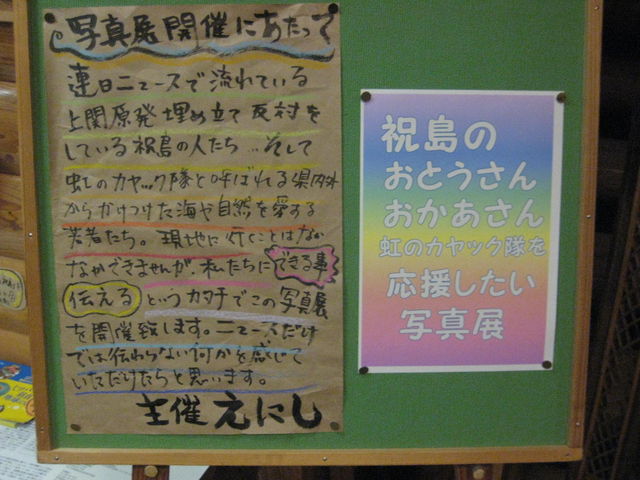 写真展開催にあたって
連日ニュースで流れている
上関原発埋め立て反対を
している祝島の人たち…そして
虹のカヤック隊と呼ばれる県内外
からかけつけた海や自然を愛する
若者たち。現地に行くことはなか
なかできませんが、私たちにできる事
伝えるというカタチでこの写真展
を開催致します。ニュースだけ
では伝わらない何かを感じて
いただけたらと思います。
主催 えにし
祝島の
おとうさん
おかあさん
虹のカヤック隊を
応援したい
写真展